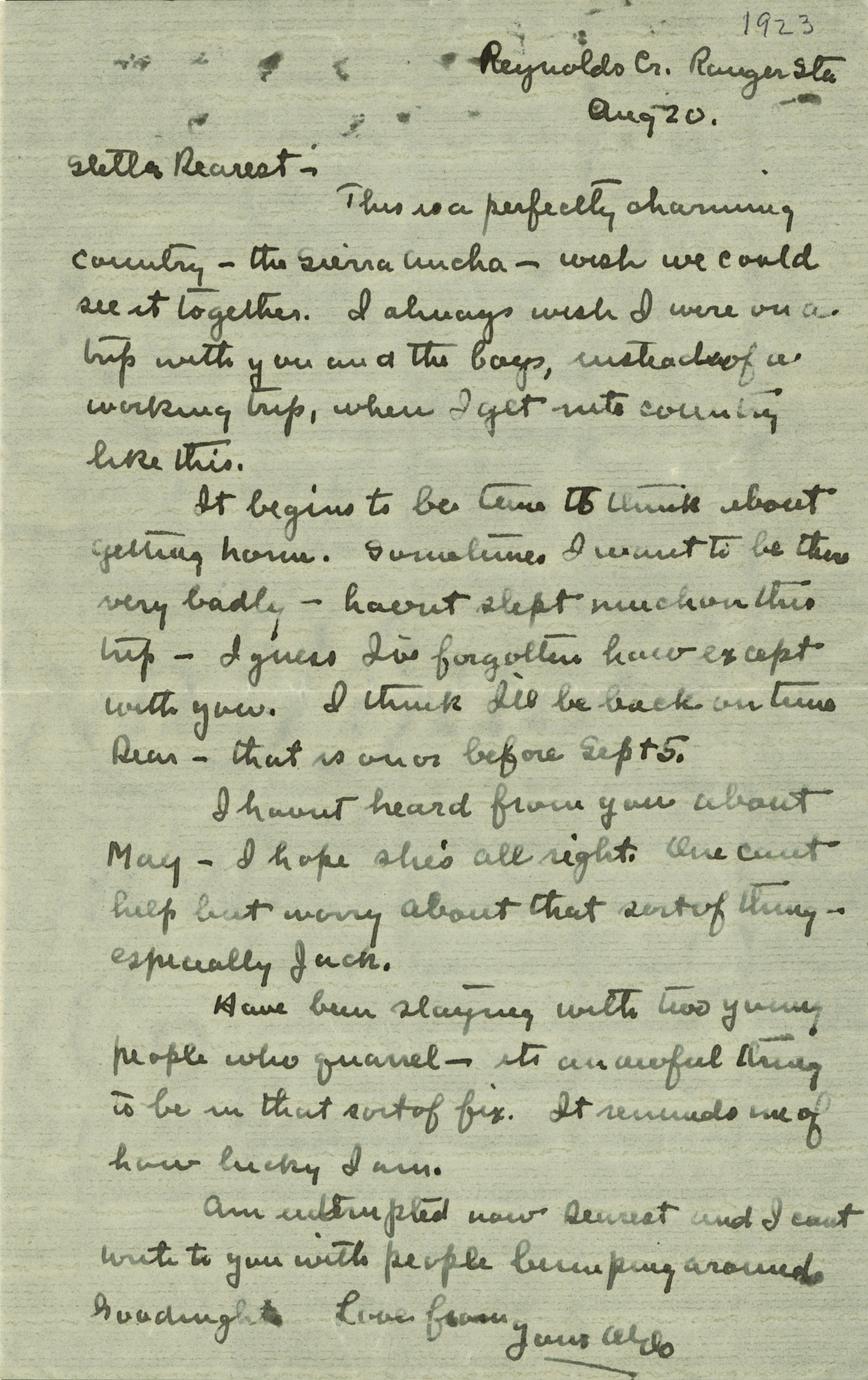 1923
Reynolds Cr. Ranger Sta
Aug 20.
Estella Dearest -
This is a perfectly charming
country - the Sierra Ancha - wish we could
see it together. I always wish I were on a
trip with you and the boys, instead of a
working trip, when I get into country
like this.
It begins to be time to think about
getting home. Sometimes I want to be there
very badly - havent slept much on this
trip - I guess I've forgotten how except
with you. I think I'll be back on time
Dear - that is on or before Sept 5.
I havent heard from you about
May - I hope she's all right. One cant
help but worry about that sort of thing -
especially Jack.
Have been staying with two young
people who quarrel - its an awful thing
to be in that sort of fix. It reminds me of
how lucky I am.
Am interrupted now dearest and I cant
write to you with people bumping around
Goodnight Love from
Your Aldo